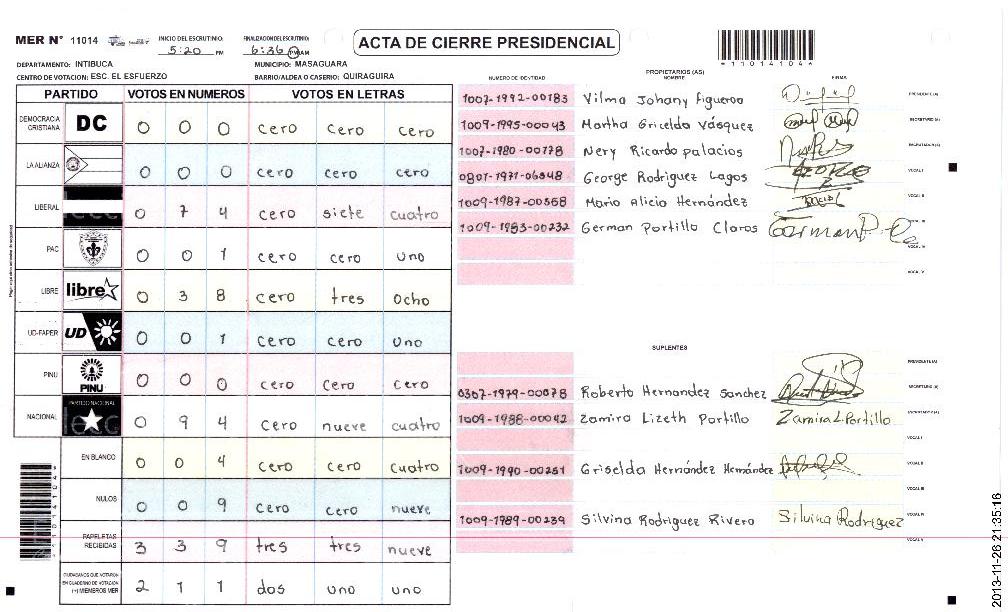 MER N° 11014
INICIO DEL ESCRUTINIO: 5:20 PM
FINALIZACION DEL ESCRUTINIO: 6:36 PM AM
ACTA DE CIERRE PRESIDENCIAL
*11014104*
DEPARTAMENTO: INTIBUCA
MUNICIPIO: MASAGUARA
CENTRO DE VOTACION: ESC. EL ESFUERZO
BARRIO/ALDEA O CASERIO: QUIRAGUIRA
PARTIDO VOTOS EN NUMEROS VOTOS EN LETRAS
DEMOCRACIA CRISTIANA DC 0 0 0 cero cero cero
LA ALIANZA 0 0 0 cero cero cero
LIBERAL 0 7 4 cero siete cuatro
PAC 0 0 1 cero cero uno
LIBRE libre 0 3 8 cero tres ocho
UD-FAPER UD 0 0 1 cero cero uno
PINU PINU 0 0 0 cero cero cero
NACIONAL PARTIDO NACIONAL 0 9 4 cero nueve cuatro
EN BLANCO 0 0 4 cero cero cuatro
NULOS 0 0 9 cero cero nueve
PAPELETAS RECIBIDAS 3 3 9 tres tres nueve
CIUDADANOS QUE VOTARON EN CUADERNO DE VOTACION (+) MIEMBROS MER 2 1 1 dos uno uno
NUMERO DE IDENTIDAD
PROPIETARIOS (AS)
NOMBRE
FIRMA
1007-1992-00183 Vilma Johany figueroa PRESIDENTE (A)
1009-1995-00043 Martha Gricelda Vásquez SECRETARIO (A)
1007-1980-00178 Nery Ricardo palacios ESCRUTADOR (A)
0801-1971-06848 George Rodriguez Lagos VOCAL I
1009-1987-00368 Mario Alicio Hernández VOCAL II
1009-1983-00232 German Portillo Claros VOCAL III
VOCAL IV
VOCAL V
SUPLENTES
PRESIDENTE (A)
0307-1979-00078 Roberto Hernandez Sanchez SECRETARIO (A)
1009-1988-00042 Zamira Lizeth Portillo Zamira L Portillo ESCRUTADOR (A)
VOCAL I
1009-1990-00251 Griselda Hernández Hernández VOCAL II
VOCAL III
1009-1989-00239 Silvina Rodriguez Rivero Silvina Rodriguez VOCAL IV
VOCAL V
2013-11-26 21:35:16